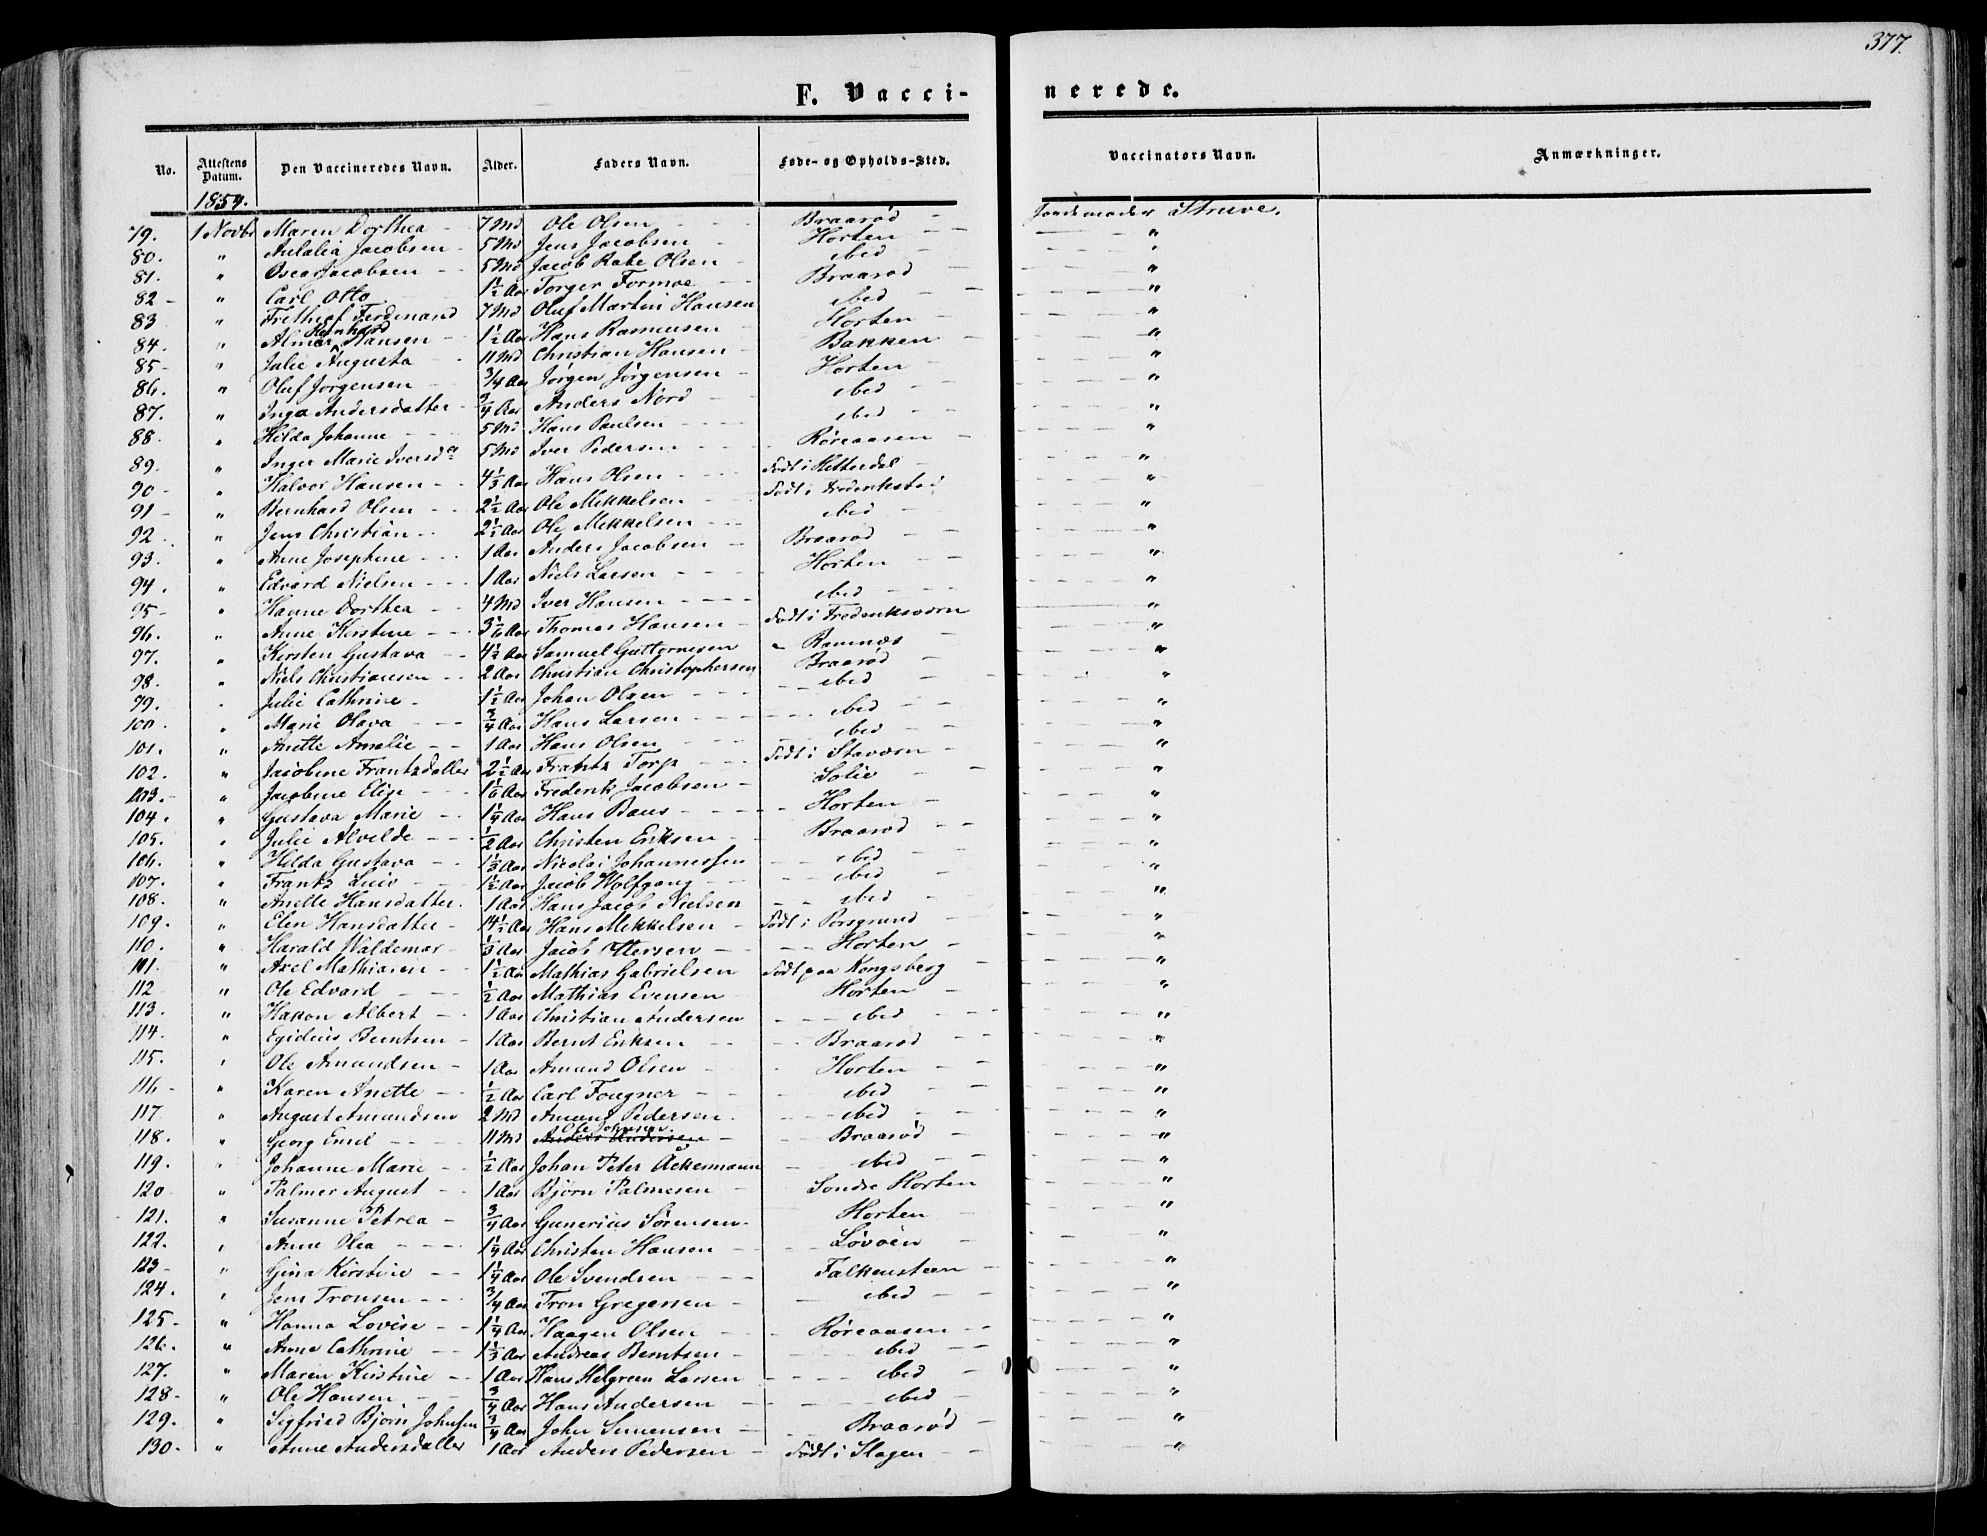 377.
F. Vacci-
nerede.
No.
Attestens Datum.
Den Vaccineredes Navn.
Alder.
Faders Navn.
Føde- og Opholds-Sted.
Vaccinators Navn.
Anmærkninger.
1854.
79. 1 Novbr Maren Dorthea 7 Md Ole Olsen Braarød Jordemoder Struve.
80. " Aulalia Jacobsen 5 Md Jens Jacobsen Horten "
81. " Oscar Jacobsen 5 Md Jacob Olsen ibid "
82 " Carl Otto 1½ Aar Torger Formoe Braarød "
83 " Frethjof Ferdinand 7 Md Oluf Martin Hansen ibid "
84. " Almar Bernhard Hansen 1½ Aar Hans Rasmusen Horten "
85 " Julie Augusta 11 Md Christian Hansen Bakken "
86. " Oluf Jørgensen ¾ Aar Jørgen Jørgensen Horten "
87. " Inga Andersdatter ¾ Aar Anders Nord ibid "
88. " Hilda Johanne 5 Md Hans Paulsen ibid "
89. " Inger Marie Iversdr 5 Md Iver Pedersen Røreaasen "
90 " Halvor Hansen 4⅓ Aar Hans Olsen Født i Hitterdal "
91 " Bernhard Olsen 2½ Aar Ole Mikkelsen Født i Frederikstad "
92 " Jens Christian 2½ Aar Ole Mikkelsen ibid "
93. " Anne Josephine 1 Aar Anders Jacobsen Braarød "
94. " Edvard Nielsen 1 Aar Niels Larsen Horten "
95 " Hanne Dorthea 4 Md Iver Hansen ibid "
96. " Anne Kirstine 3⅙ Aar Thomas Hansen Født i Frederiksværn "
97. " Kirsten Gustava 4½ Aar Samuel Guttormsen " Ramnæs "
98. " Niels Christiansen 2 Aar Christian Christophersen Braarød "
99. " Julie Cathrine 1½ Aar Johan Olsen ibid "
100. " Marie Olava ¾ Aar Hans Larsen ibid "
101. " Anette Amalie 1 Aar Hans Olsen ibid "
102. " Jacobine Frantzdatter 2½ Aar Frantz Torp Født i Staværn "
103. " Jacobine Elise 1⅙ Aar Frederik Jacobsen Solie "
104. " Gustava Marie 1¼ Aar Hans Baus Horten "
105. " Julie Alvelde ½ Aar Christen Eriksen Braarød "
106. " Hilda Gustava 1⅓ Aar Nicolai Johannessen ibid "
107. " Frantz Luiv 1½ Aar Jacob Wolfgang ibid "
108. " Anette Hansdatter 1 Aar Hans Jacob Nielsen ibid "
109. " Elen Hansdatter 14½ Aar Hans Mikkelsen Født i Porsgrund "
110. " Harald Waldemar ⅓ Aar Jacob Ottersen Horten "
111. " Axel Mathiasen 1½ Aar Mathias Gabrielsen Født paa Kongsberg "
112 " Ole Edvard ½ Aar Mathias Evensen Horten "
113. " Hakon Albert 1 Aar Christian Andersen ibid "
114. " Egidius Berntsen 1 Aar Bernt Eriksen Braarød "
115. " Ole Amundsen 1 Aar Amund Olsen Horten "
116 " Karen Anette ½ Aar Carl Fougner ibid "
117 " August Amundsen 2 Md Amund Pedersen ibid "
118. " Georg Emil 11 Md Ole Johnsen Anders Andersen Braarød "
119. " Johanne Marie ½ Aar Johan Peter Ackermann ibid "
120 " Palmer August 1 Aar Bjørn Palmesen Søndre Horten "
121. " Susanne Petrea ¾ Aar Gunerius Sørensen Horten "
122. " Anne Olea 1¼ Aar Christen Hansen Løvøen "
123 " Gina Kirstine 1¼ Aar Ole Svendsen Falkensteen "
124. " Jens Tronsen ¾ Aar Tron Gregersen ibid "
125 " Hanna Lovise 1¼ Aar Haagen Olsen Røreaasen "
126. " Anne Cathrine 1⅓ Aar Andreas Berntsen ibid "
127. " Maren Kirstine 1 Aar Hans Helgreen Larsen ibid "
128 " Ole Hansen ¾ Aar Hans Andersen ibid "
129. " Sigfried Bjørn Johnsen ¾ Aar John Simensen Braarød "
130 " Anne Andersdatter 1 Aar Anders Pedersen Født i Slagen "